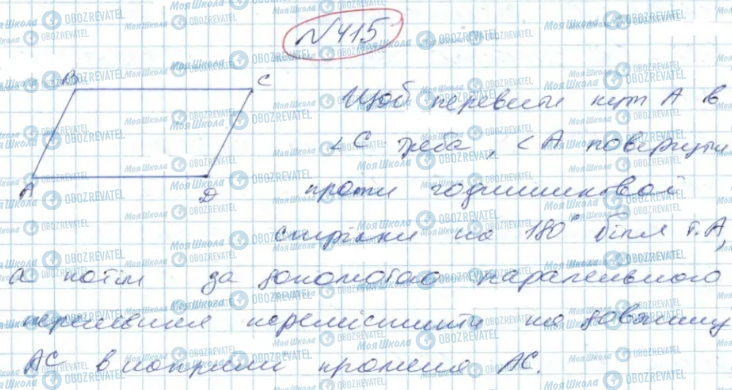 №415
B C
Щоб перевести кут A в
∠C треба, ∠A повернути
A D
проти годинникової
стрілки на 180° біля т.A,
а потім за допомогою паралельного
перенесення перемістити на довжину
AC в напрямі променя AC.